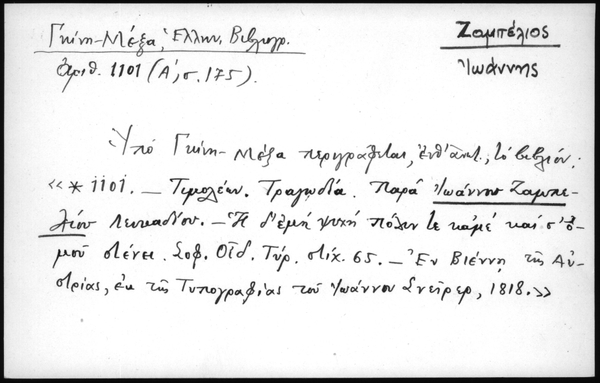 Γκίνη-Μέξα, Ἑλλην. Βιβλιογρ.
ἀριθ. 1101 (Α', σ. 175).
Ζαμπέλιος
Ἰωάννης
Ὑπό Γκίνη-Μέξα περιγράφεται, ἐνθ' ἀνωτ., τό βιβλίον:
«* 1101. — Τιμολέων. Τραγωδία. Παρά Ἰωάννου Ζαμπε-
λίου Λευκαδίου. — Ἡ δ' ἐμή ψυχή πόλιν τε κἀμέ καί σ' ὁ-
μοῦ στένει. Σοφ. Οἰδ. Τύρ. στιχ. 65. — Ἐν Βιέννη τῆς Αὐ-
στρίας, ἐκ τῆς Τυπογραφίας τοῦ Ἰωάννου Σνείρερ, 1818.»